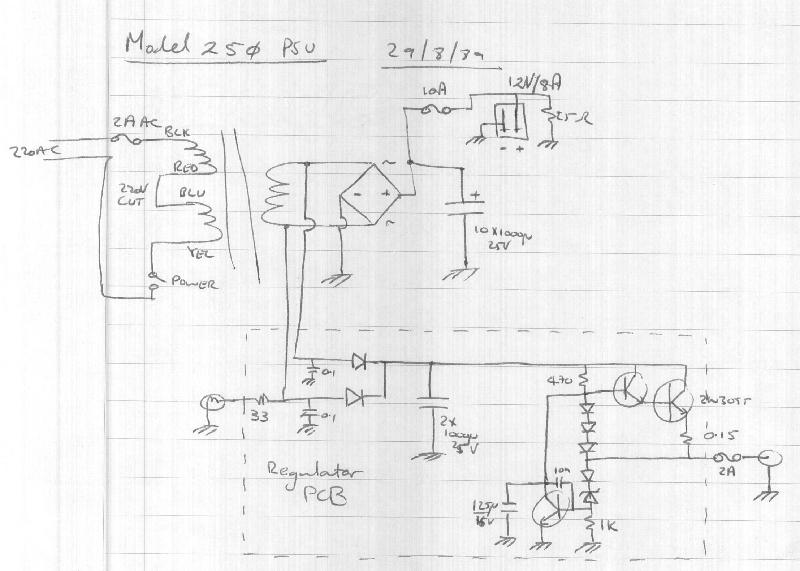 Model 250 PSU
29/8/89
12V/8A
10A
2A AC
BLK
25Ω
220AC
- +
RED
~
220V
CUT
BLU
- +
+
~
10X1000µ
25V
YEL
POWER
0.1
470
2N3055
33
0.1
2X
1000µ
25V
0.15
2A
Regulator
PCB
10n
125µ
16V
1K